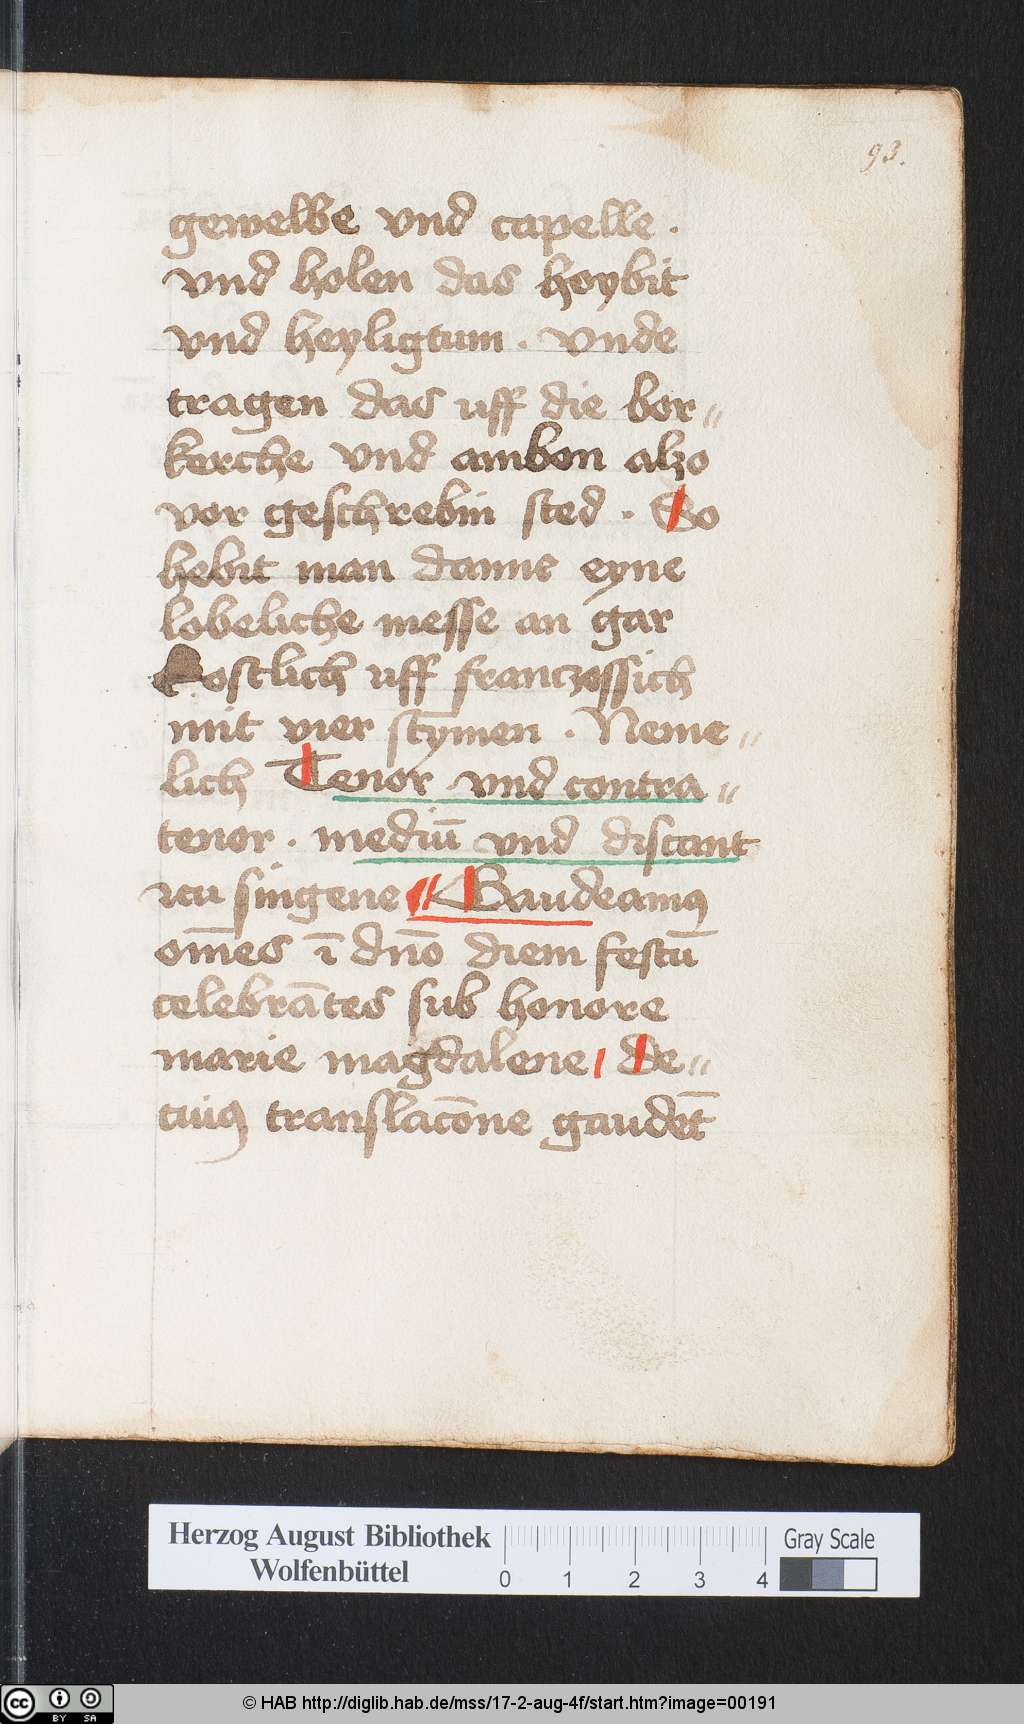 93.
gewelbe vnd capelle .
vnd holen das hoybit
vnd heyligtum . vnde
tragen das uff die bor⸗
kerche vnd ambon alzo
vor geschrebin sted . So
hebit man danne eyne
lobeliche messe an gar
kostlich uff franczossich
mit vier stȳmen . Neme⸗
lich Tenor vnd contra⸗
tenor . mediū vnd discant
czu singene Gaudeamꝯ
om̄es ī dn̄o diem festū
celebrātes sub honore
marie magdalene / De⸗
cuiꝯ translacōne gaudēt
Herzog August Bibliothek
Wolfenbüttel
0 1 2 3 4
Gray Scale
cc BY SA
© HAB http://diglib.hab.de/mss/17-2-aug-4f/start.htm?image=00191